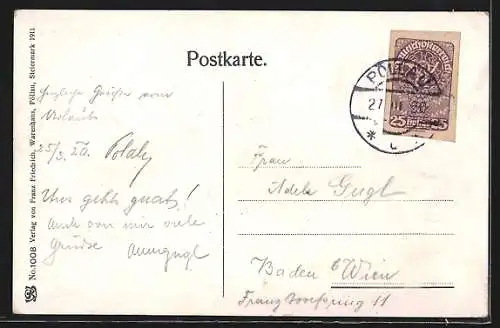 No. 1008 Verlag von Franz Friedrich, Warenhaus, Pöllau, Steiermark 1911
Postkarte.
PÖLLAU
27 III 20
25 25
Herzliche Grüße vom
Urlaub
25/3. 20.
Uns gehts gut!
Auch von mir viele
Grüsse
Frau
Adele Gugl
Baden b/Wien
Franz Josefring 11